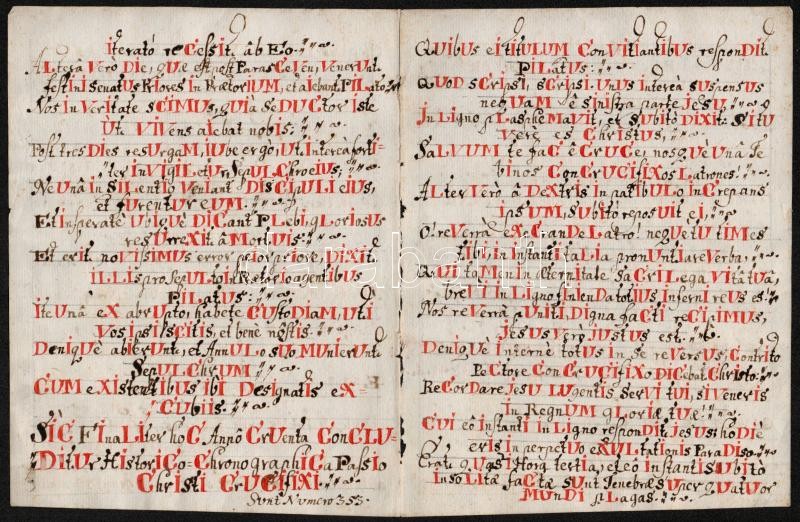 iterató reCessit âb Eo.
ALterâ Vero DIe, que est post ParasCeVen, Venerunt
festInI SenatUs PrIores In PrætorIUM, et aIebant PILato:
Nos In VerItate sCIMUs, qUIa seDUCtor Iste
Ut VIVens aIebat nobIs:
Post tres DIes resUrgaM, IUbe ergò, Ut IntereàfortI=
ter In VIgILetUr SepULChro eIUs;
Ne Unâ In SILentIo VenIant DIsCIpULI eIUs,
et fUrentUr eUM.
Et InsperatE UbIqUè DICant PLebI, gLorIosUs
resUrreXIt â MortUIs:
Et erIt noVIssIMUs error peIor prIore. DIXIt.
ILLIs pro sepULto In Prætorio agentIbUs
PILatUs:
Ite Unâ eX abrUpto, habete CUstoDIaM, UtI
Vos IpsI sCItIs, et benè nostIs.
DenIqUè abIerUnt; et AnnULo sUo MUnIerUnt
SepULChrUM
CUM eXIstentIbUs IbI DesIgnatIs eX=
CUbIIs.
SIC FInaLIter hoC Annô CrUenta ConCLU=
DItUr HIstorICo=ChronographICa PassIo
ChrIstI CrUCIfIXI.
Sunt Numero 353.
QUIbUs et tItULUM ConVItIantIbUs responDIt
PILatUs:
QUoD sCrIpsI, sCrIpsI. UnUs Intereà sUspensUs
neqUaM è sInIstra parte Jesu
In LIgno pLasphemaVIt, et sUbItò DIXIt: SI tU
Verè es ChrIstUs,
SaLVUM te faC è CrUCe, nosqUe Unâ Te
bInos ConCrUCIfIXos Latrones!
ALter Verò â DeXtrIs In patIbULo InCrepans
IpsUM, sUbItò reposUIt eI,
O! reVerrà eXeCranDe Latro! neqUe tU tImes
tIbI In InstantI taLIa pronUntIare Verba:
QUI taMen In æternItate SaCrILega VIta tUâ,
breVI In LIgno fInIenDa totIUs InfernI reUs es!
Nos reVerrà pUnItI, DIgna faCtI reCIpIMUs,
JesUs Verò jUstUs est.
DenIqUè Internè totUs In se reVersUs; ContrIto
PeCtore ConCrUCIfIXo DICebat ChrIsto:
ReCorDare JesU LUgentIs SerVI tUI, sI VenerIs
In RegnUM gLorIæ tUæ!
CUI eô InstantI In LIgno responDIt JesUs: hoDIè
erIs In perpetUo eXULtatIonIs ParaDIso.
Erat qUasI Hora tertIa, et eo InstantI sUbItò
InsoLItæ faCtæ sUnt Tenebræ sUper qUatUor
MUnDI pLagas.
darabanth